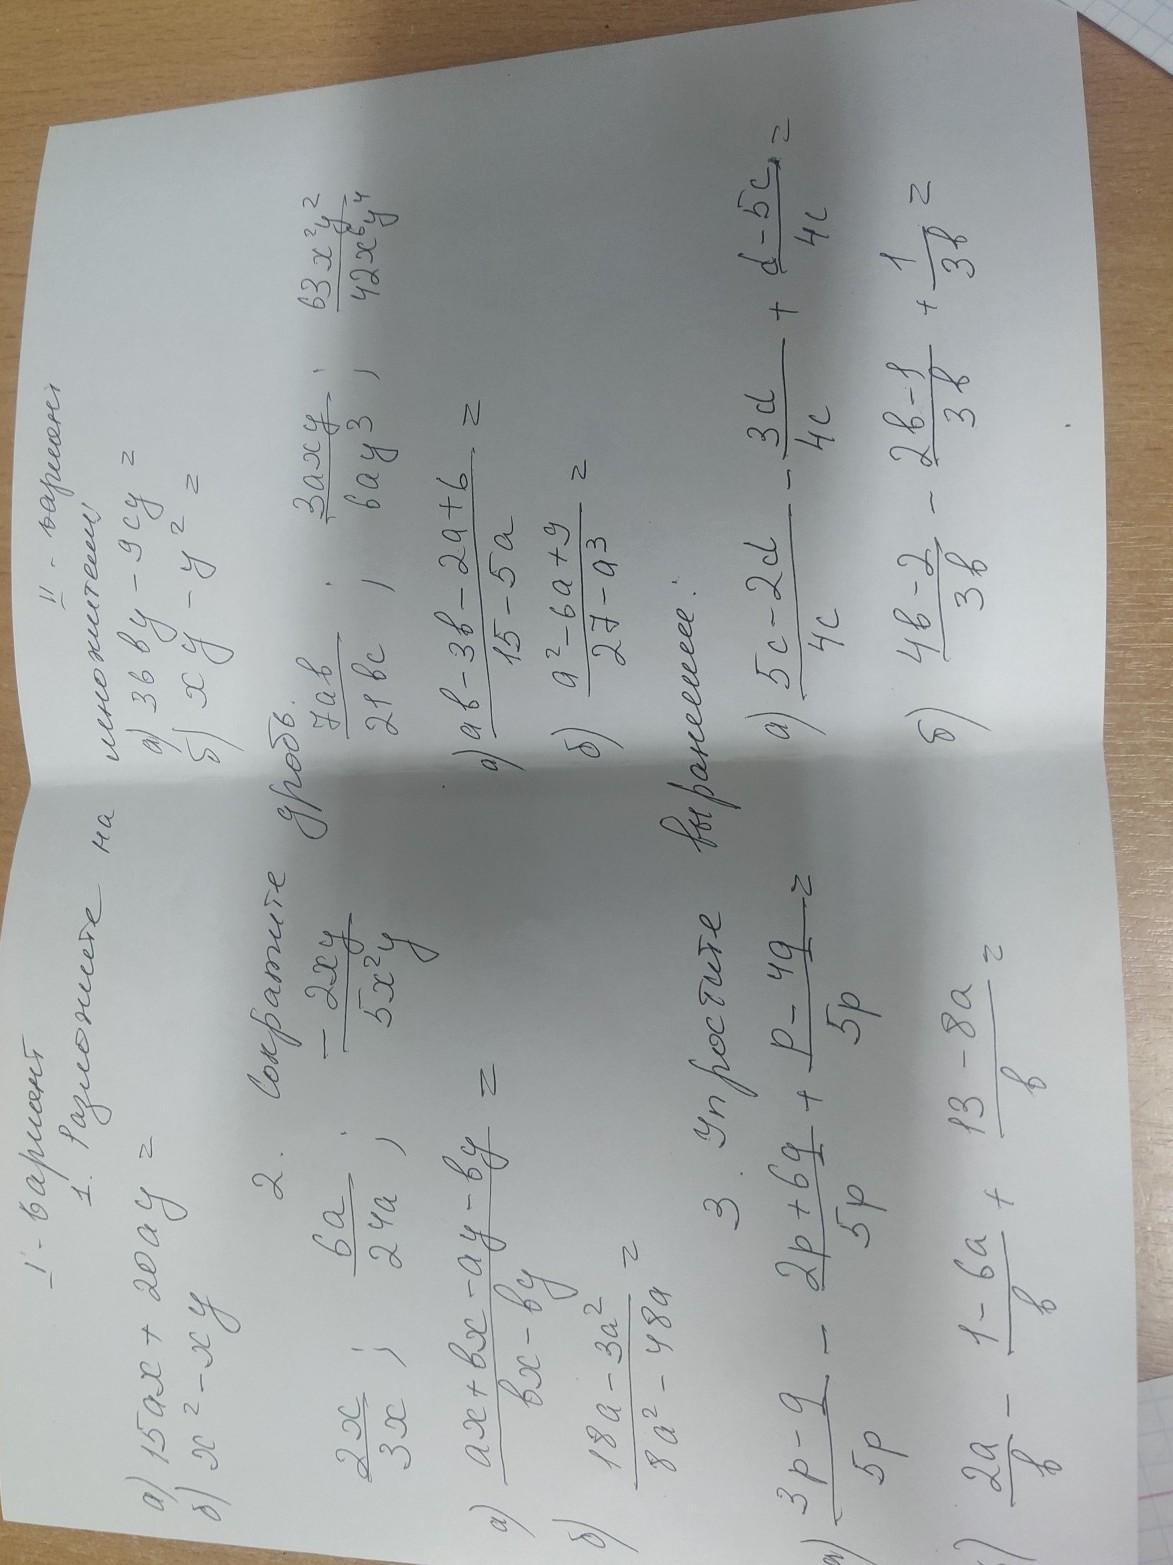 I - вариант
II - вариант
1. Разложите на множители:
а) 15ax + 20ay =
б) x² - xy
а) 3by - 9cy =
б) xy - y² =
2. Сократите дробь.
2x/3x ; 6a/24a ; -2xy/5x²y
7ab/21bc ; 3axy/6ay³ ; 63x²y²/42x⁶y⁴
а) (ax + bx - ay - by)/(bx - by) =
б) (18a - 3a²)/(8a² - 48a) =
а) (ab - 3b - 2a + 6)/(15 - 5a) =
б) (a² - 6a + 9)/(27 - a³) =
3. Упростите выражение:
а) (3p - q)/5p - (2p + 6q)/5p + (p - 4q)/5p =
2a/b - (1 - 6a)/b + (13 - 8a)/b =
а) (5c - 2d)/4c - 3d/4c + (d - 5c)/4c =
б) (4b - 2)/3b - (2b - 1)/3b + 1/3b =